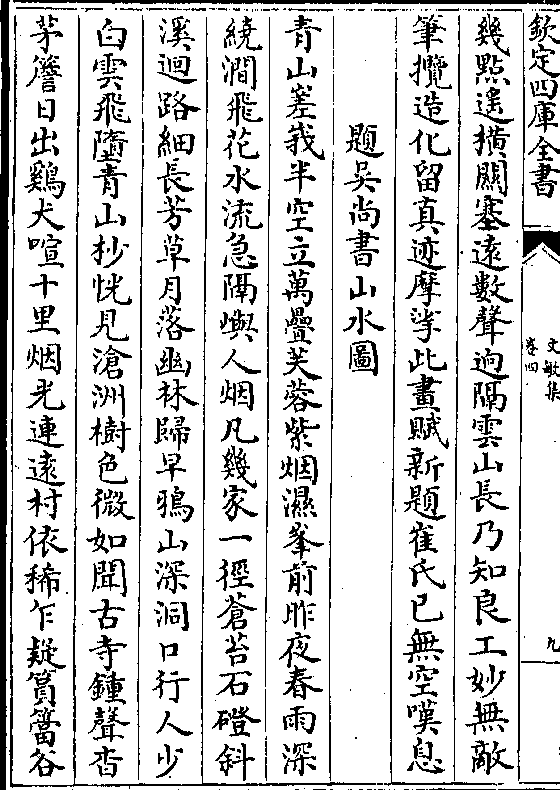 欽定四庫全書
文敏集
卷四
九
幾點遥橫關塞遠數聲逈隔雲山長乃知良工妙無敵
筆攬造化留真迹摩挲此畫賦新題崔氏已無空嘆息
題吳尚書山水圖
青山嵳峩半空立萬疊芙蓉紫烟濕峯前昨夜春雨深
繞澗飛花水流急隔㠘人烟凡幾家一徑蒼苔石磴斜
溪迴路細長芳草月落幽林歸早鴉山深洞口行人少
白雲飛墮青山杪恍見滄洲樹色微如聞古寺鐘聲杳
茅簷日出鷄犬喧十里烟光連遠村依稀乍疑篔簹谷